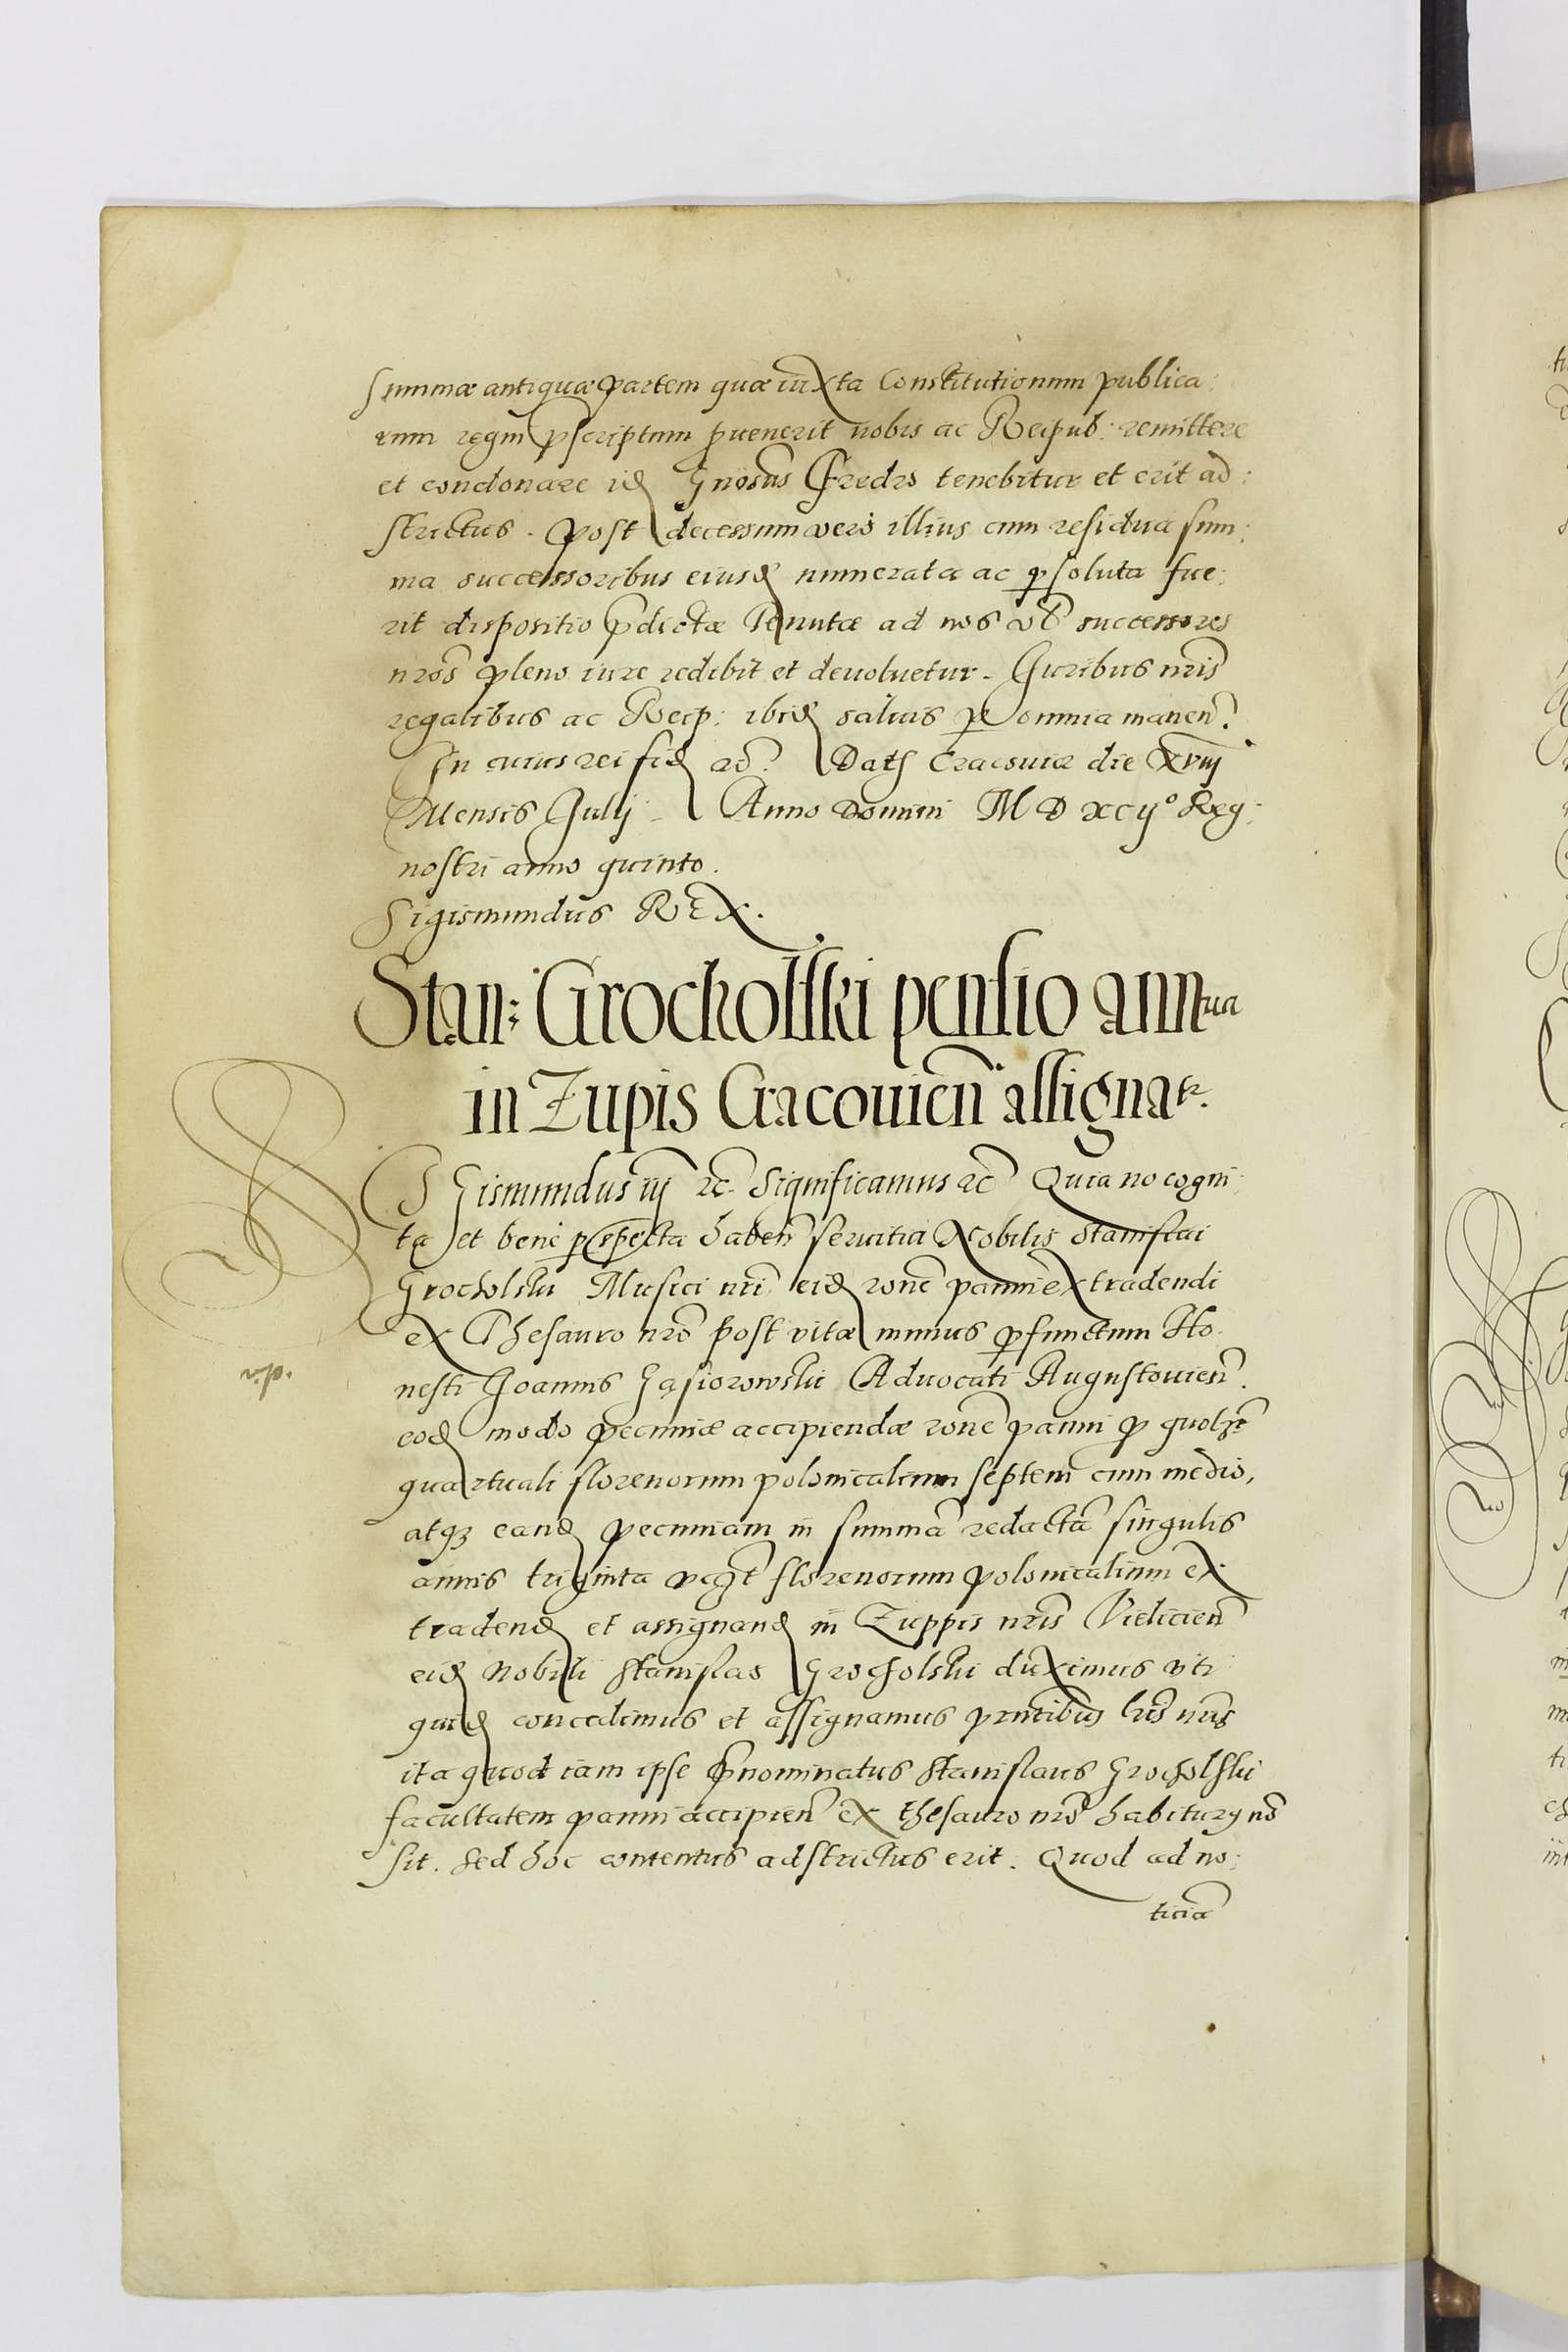 summæ antiquæ partem quæ iuxta Constitutionum publica:
rum regni pscriptum puenerit nobis ac Reipub: remittere
et condonare id Gnosus Fredro tenebitur et erit ad:
strictus. Post decessum vero illius cum residua sum:
ma successoribus eiusd numerata ac psoluta fue:
rit dispositio pdictæ Tenutæ ad nos vel successores
nros pleno iure redibit et devoluetur. Juribus nris
regalibus ac Reip: ibid salvis p omnia manen.
In cuius rei fid ac. Dat Cracoviæ die xviij
Mensis Julij Anno Domini M D xcij° Reg:
nostri anno quinto.
Sigismundus REX.
Stan: Grocholski pensio annua
in Zupis Cracovien assignatr.
Sigismundus iij etc. Significamus etc Quia nos cogni:
ta et bene perspecta haben servitia Nobilis Stanislai
Grocholski Musici nri eid rone panni extradendi
ex Thesauro nro post vitæ munus pfunctum Ho:
nesti Joannis Gąsiorowski Advocati Augustovien.
eod modo pecuniæ accipiendæ rone panni p quolibet
quartuali florenorum polonicalium septem cum medio,
atq3 eand pecuniam in summa redacta singulis
annis triginta florenorum polonicalium ex
tradend et assignand in Zuppis nris Vielicien
eid Nobili Stanislao Grocholski duximus uti
quid concedimus et assignamus pntibus lris nris
ita quod iam ipse pnominatus Stanislaus Grocholski
facultatem panni accipien ex thesauro nro habiturus no
sit. Sed hoc contentus adstrictus erit. Quod ad no:
ticia